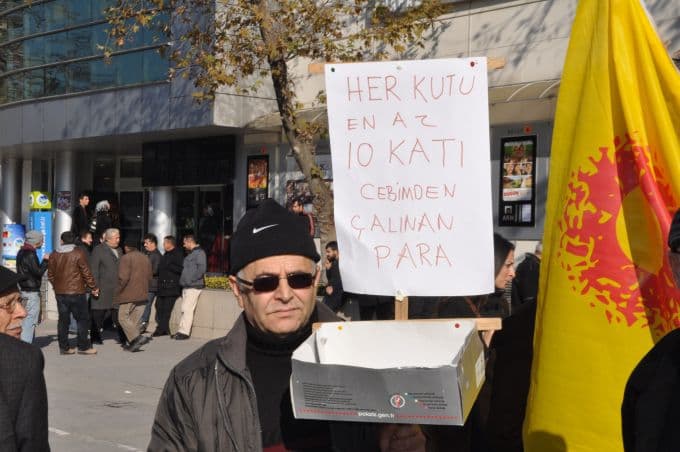 HER KUTU
EN AZ
10 KATI
CEBİMDEN
ÇALINAN
PARA